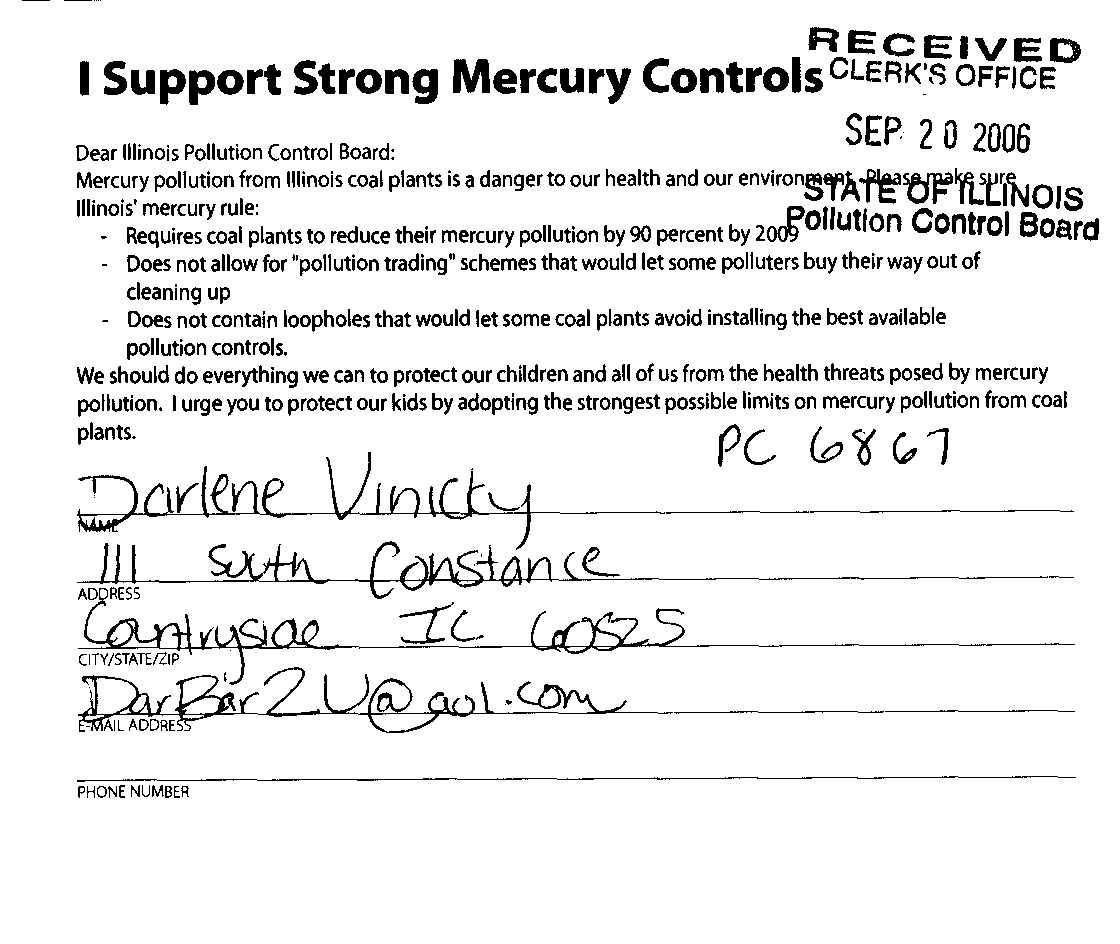 RECEIVED
CLERK'S OFFICE
I Support Strong Mercury Controls
SEP 20 2006
STATE OF ILLINOIS
Pollution Control Board
Dear Illinois Pollution Control Board:
Mercury pollution from Illinois coal plants is a danger to our health and our environment. Please make sure
Illinois' mercury rule:
- Requires coal plants to reduce their mercury pollution by 90 percent by 2009
- Does not allow for "pollution trading" schemes that would let some polluters buy their way out of
cleaning up
- Does not contain loopholes that would let some coal plants avoid installing the best available
pollution controls.
We should do everything we can to protect our children and all of us from the health threats posed by mercury
pollution. I urge you to protect our kids by adopting the strongest possible limits on mercury pollution from coal
plants.
PC 6867
Darlene Vinicky
NAME
111 South Constance
ADDRESS
Countryside IL 60525
CITY/STATE/ZIP
DarBar2U@aol.com
E-MAIL ADDRESS
PHONE NUMBER